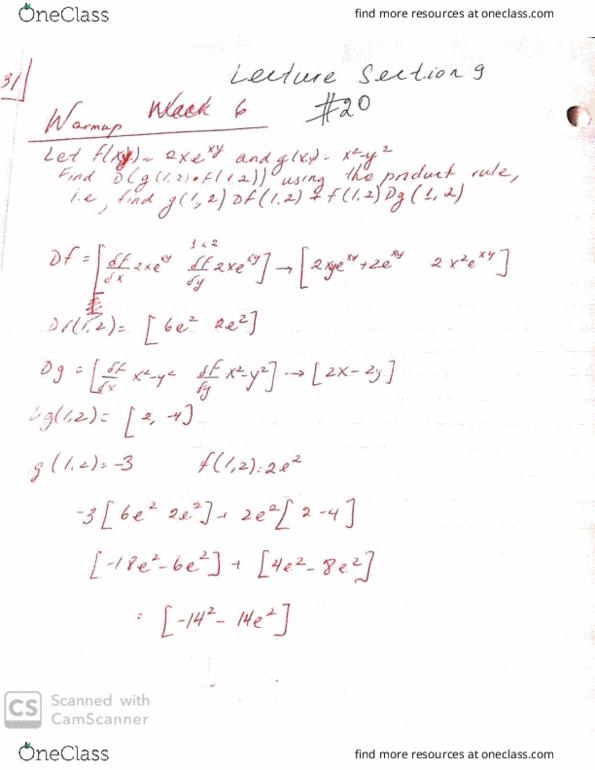 OneClass
find more resources at oneclass.com
31
Lecture Section 9
Warmup Week 6 #20
Let f(xy) = 2xe^xy and g(x,y) = x²-y²
Find D(g(1,2)·f(1,2)) using the product rule,
i.e, find g(1,2) Df(1,2) + f(1,2) Dg(1,2)
1×2
Df = [df/dx 2xe^xy df/dy 2xe^xy] → [2xye^xy+2e^xy 2x²e^xy]
Df(1,2) = [6e² 2e²]
Dg = [df/dx x²-y² df/dy x²-y²] → [2x - 2y]
Dg(1,2) = [2, -4]
g(1,2) = -3 f(1,2) : 2e²
-3[6e² 2e²] + 2e²[2 -4]
[-18e² -6e²] + [4e² - 8e²]
= [-14² - 14e²]
CS Scanned with
CamScanner
OneClass
find more resources at oneclass.com